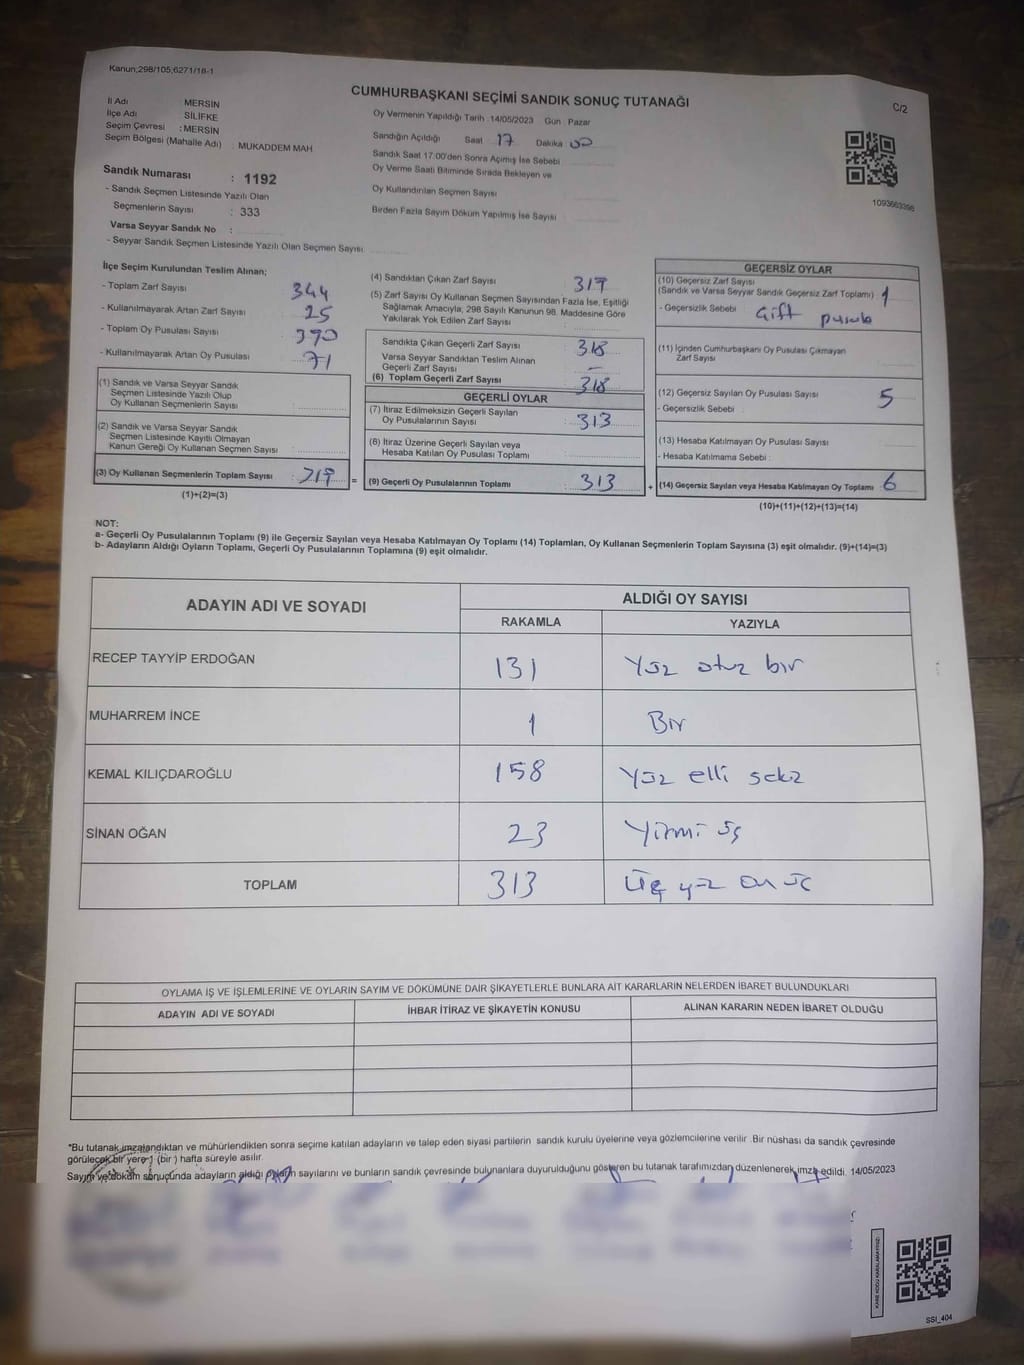 Kanun;298/105,6271/18-1
CUMHURBAŞKANI SEÇİMİ SANDIK SONUÇ TUTANAĞI
C/2
İl Adı MERSİN
İlçe Adı SİLİFKE
Seçim Çevresi : MERSİN
Seçim Bölgesi (Mahalle Adı) : MUKADDEM MAH
Sandık Numarası : 1192
- Sandık Seçmen Listesinde Yazılı Olan
Seçmenlerin Sayısı : 333
Varsa Seyyar Sandık No :
- Seyyar Sandık Seçmen Listesinde Yazılı Olan Seçmen Sayısı
Oy Vermenin Yapıldığı Tarih :14/05/2023 Gün : Pazar
Sandığın Açıldığı Saat 17 Dakika 00
Sandık Saat 17:00'den Sonra Açımış İse Sebebi
Oy Verme Saati Bitiminde Sırada Bekleyen ve
Oy Kullandırılan Seçmen Sayısı
Birden Fazla Sayım Döküm Yapılmış İse Sayısı
1093663398
İlçe Seçim Kurulundan Teslim Alınan;
- Toplam Zarf Sayısı 344
- Kullanılmayarak Artan Zarf Sayısı 25
- Toplam Oy Pusulası Sayısı 390
- Kullanılmayarak Artan Oy Pusulası 71
(1) Sandık ve Varsa Seyyar Sandık
Seçmen Listesinde Yazılı Olup
Oy Kullanan Seçmenlerin Sayısı
(2) Sandık ve Varsa Seyyar Sandık
Seçmen Listesinde Kayıtlı Olmayan
Kanun Gereği Oy Kullanan Seçmen Sayısı :
(3) Oy Kullanan Seçmenlerin Toplam Sayısı : =
(1)+(2)=(3)
(4) Sandıktan Çıkan Zarf Sayısı
(5) Zarf Sayısı Oy Kullanan Seçmen Sayısından Fazla İse, Eşitliği
Sağlamak Amacıyla, 298 Sayılı Kanunun 98. Maddesine Göre
Yakılarak Yok Edilen Zarf Sayısı :
Sandıkta Çıkan Geçerli Zarf Sayısı : 318
Varsa Seyyar Sandıktan Teslim Alınan
Geçerli Zarf Sayısı : -
(6) Toplam Geçerli Zarf Sayısı 318
GEÇERLİ OYLAR
(7) İtiraz Edilmeksizin Geçerli Sayılan
Oy Pusulalarının Sayısı : 313
(8) İtiraz Üzerine Geçerli Sayılan veya
Hesaba Katılan Oy Pusulası Toplamı :
(9) Geçerli Oy Pusulalarının Toplamı : 313 +
GEÇERSİZ OYLAR
(10) Geçersiz Zarf Sayısı
(Sandık ve Varsa Seyyar Sandık Geçersiz Zarf Toplamı) 1
- Geçersizlik Sebebi : Çift pusula
(11) İçinden Cumhurbaşkanı Oy Pusulası Çıkmayan
Zarf Sayısı
(12) Geçersiz Sayılan Oy Pusulası Sayısı : 5
- Geçersizlik Sebebi :
(13) Hesaba Katılmayan Oy Pusulası Sayısı
- Hesaba Katılmama Sebebi :
(14) Geçersiz Sayılan veya Hesaba Katılmayan Oy Toplamı : 6
(10)+(11)+(12)+(13)=(14)
NOT:
a- Geçerli Oy Pusulalarının Toplamı (9) ile Geçersiz Sayılan veya Hesaba Katılmayan Oy Toplamı (14) Toplamları, Oy Kullanan Seçmenlerin Toplam Sayısına (3) eşit olmalıdır. (9)+(14)=(3)
b- Adayların Aldığı Oyların Toplamı, Geçerli Oy Pusulalarının Toplamına (9) eşit olmalıdır.
ADAYIN ADI VE SOYADI ALDIĞI OY SAYISI
RAKAMLA YAZIYLA
RECEP TAYYİP ERDOĞAN 131 Yüz otuz bir
MUHARREM İNCE 1 Bir
KEMAL KILIÇDAROĞLU 158 Yüz elli sekiz
SİNAN OĞAN 23 Yirmi üç
TOPLAM 313 Üç yüz on üç
OYLAMA İŞ VE İŞLEMLERİNE VE OYLARIN SAYIM VE DÖKÜMÜNE DAİR ŞİKAYETLERLE BUNLARA AİT KARARLARIN NELERDEN İBARET BULUNDUKLARI
ADAYIN ADI VE SOYADI İHBAR İTİRAZ VE ŞİKAYETİN KONUSU ALINAN KARARIN NEDEN İBARET OLDUĞU
*Bu tutanak imzalandıktan ve mühürlendikten sonra seçime katılan adayların ve talep eden siyasi partilerin sandık kurulu üyelerine veya gözlemcilerine verilir. Bir nüshası da sandık çevresinde
görülecek bir yere 1 (bir) hafta süreyle asılır.
Sayım ve döküm sonucunda adayların aldığı oyların sayılarını ve bunların sandık çevresinde bulunanlara duyurulduğunu gösteren bu tutanak tarafımızdan düzenlenerek imza edildi. 14/05/2023
KARE KODU KARALAMAYINIZ!
SSI_404